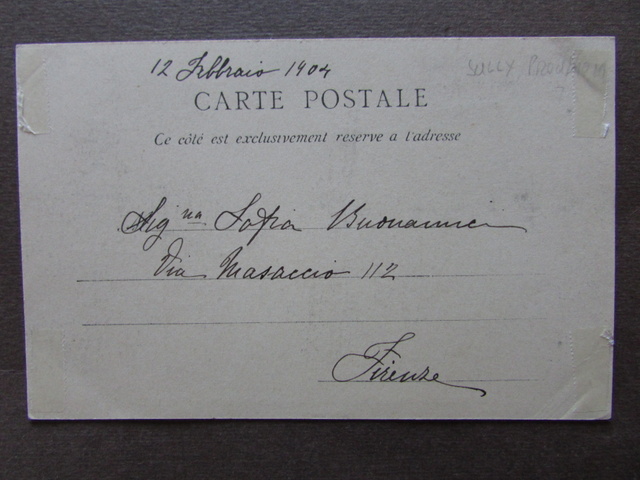 12 Febbraio 1904
SULLY PRUDHOMME
CARTE POSTALE
Ce côté est exclusivement reserve a l'adresse
Sig.na Sofia Buonamici
Via Masaccio 112
Firenze